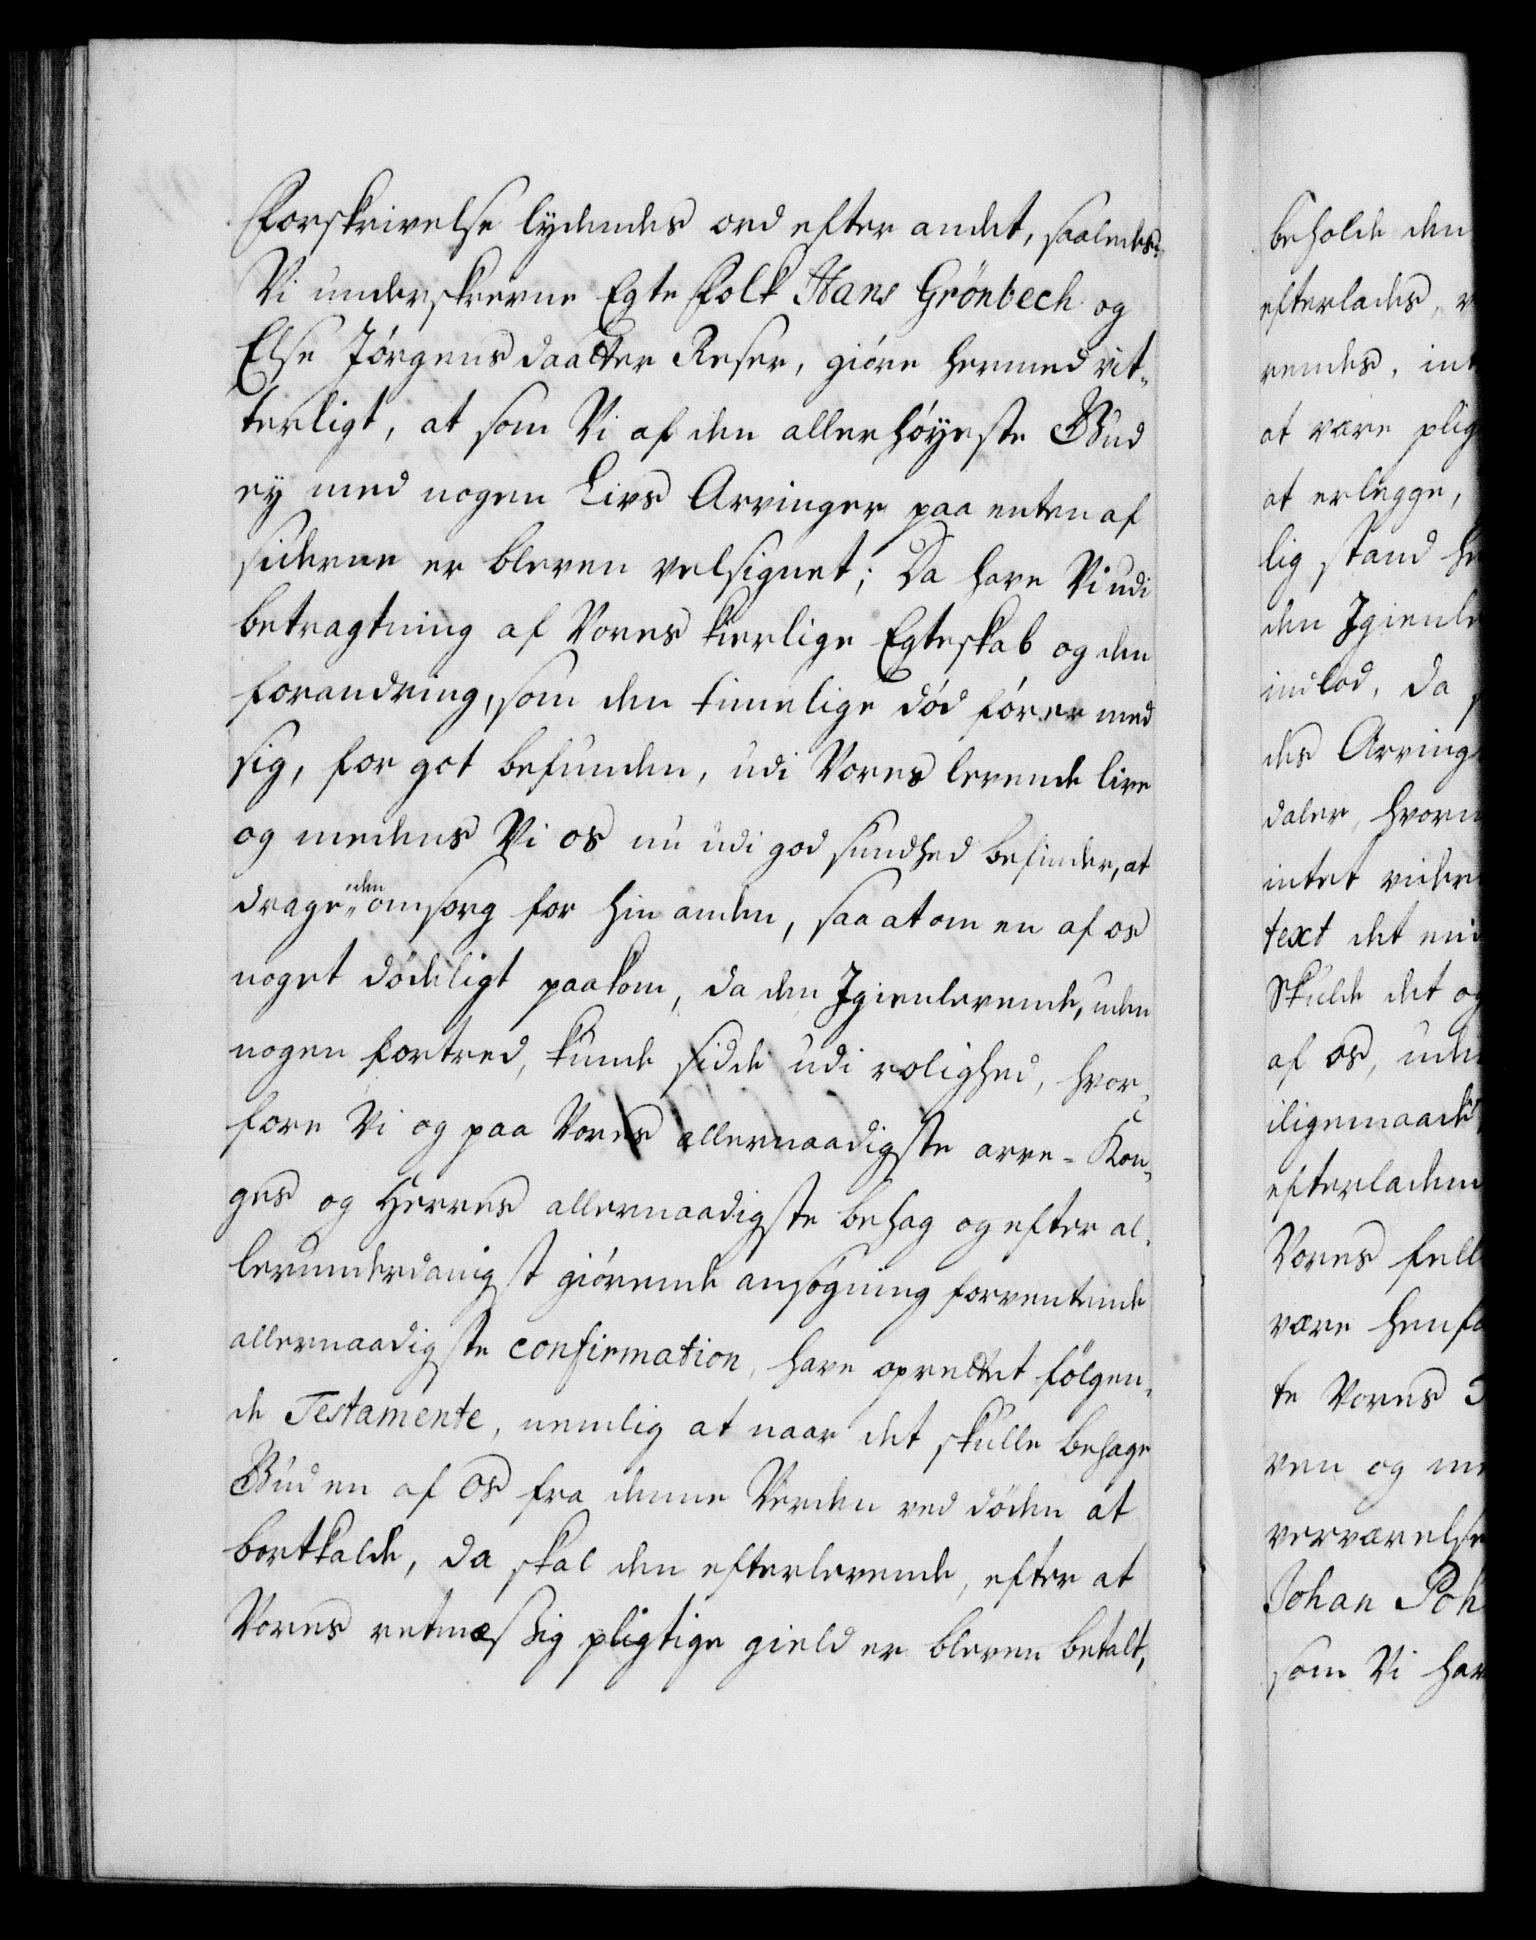 Forskrivelse lydendes ord efter andet, saaledes:
Vi underskrevne Egte Folk Hans Grönbech og
Else Jörgensdaatter Reser, giöre hermed vit-
terligt, at som Vi af den allerhöÿeste Gud
eÿ med nogen Livs Arvinger paa enten af
siderne er bleven velsignet; Da have Vi udi
betragtning af Vores kierlige Egteskab og den
forandring, som den timelige död förer med
sig, for got befunden, udi Vores levende live
og medens Vi os nu udi god sundhed befinder, at
drage den omsorg for hin anden, saa at om en af os
noget dödeligt paakom, da den Igienlevende, uden
nogen fortred, kunde sidde udi rolighed, hvor-
fore Vi og paa Vores allernaadigste arve-Kon-
ges og Herres allernaadigste behag og efter al-
lerunderdanigst giörende ansögning forventende
allernaadigste confirmation, have oprettet fölgen-
de Testamente, nemlig at naar det skulle behage
Gud en af os fra denne Verden ved döden at
bortkalde, da skal den efterlevende, efter at
Vores retmæssig pligtige gield er bleven betalt,
beholde den
efterlades, v
rendes, int
at være plig
at erlegge,
lig stand he
den Igienle
indlod, da
des Arving
daler, hvorn
intet vider
text det mi
Skulde det og
af os, uden
iligemaade
efterladen
Vores fell
være henfa
te Vores
ven og me
verværelse
Johan Poh
som Vi hav